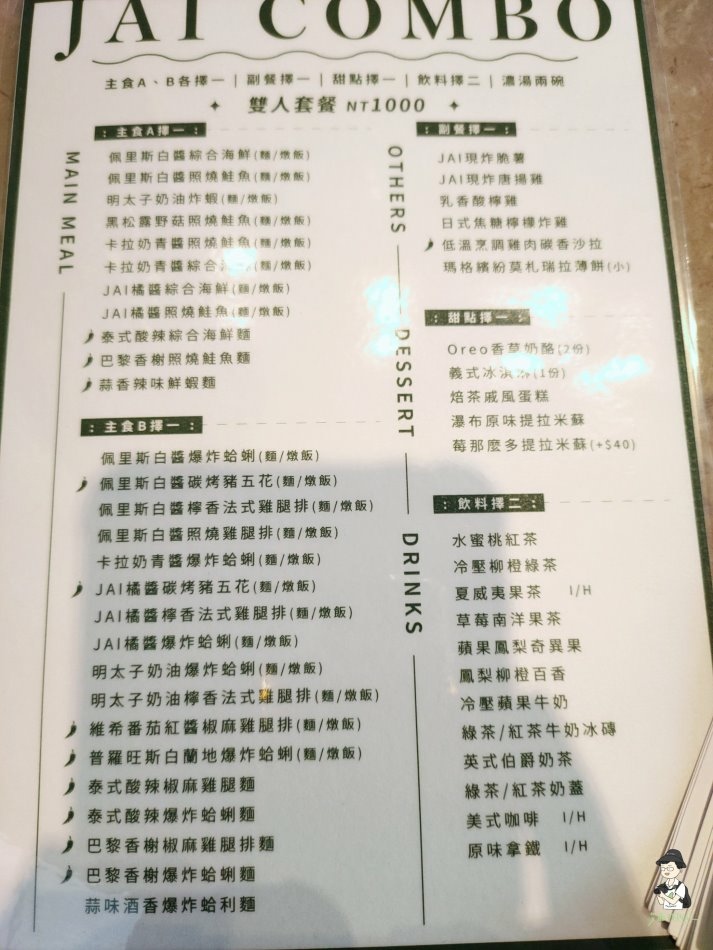 JAI COMBO
主食A、B各擇一 | 副餐擇一 | 甜點擇一 | 飲料擇二 | 濃湯兩碗
雙人套餐 NT1000
MAIN MEAL
主食A擇一：
佩里斯白醬綜合海鮮(麵/燉飯)
佩里斯白醬照燒鮭魚(麵/燉飯)
明太子奶油炸蝦(麵/燉飯)
黑松露野菇照燒鮭魚(麵/燉飯)
卡拉奶青醬照燒鮭魚(麵/燉飯)
卡拉奶青醬綜合海鮮(麵/燉飯)
JAI橘醬綜合海鮮(麵/燉飯)
JAI橘醬照燒鮭魚(麵/燉飯)
泰式酸辣綜合海鮮麵
巴黎香榭照燒鮭魚麵
蒜香辣味鮮蝦麵
：主食B擇一：
佩里斯白醬爆炸蛤蜊(麵/燉飯)
佩里斯白醬碳烤豬五花(麵/燉飯)
佩里斯白醬檸香法式雞腿排(麵/燉飯)
佩里斯白醬照燒雞腿排(麵/燉飯)
卡拉奶青醬爆炸蛤蜊(麵/燉飯)
JAI橘醬碳烤豬五花(麵/燉飯)
JAI橘醬檸香法式雞腿排(麵/燉飯)
JAI橘醬爆炸蛤蜊(麵/燉飯)
明太子奶油爆炸蛤蜊(麵/燉飯)
明太子奶油檸香法式雞腿排(麵/燉飯)
維希番茄紅醬椒麻雞腿排(麵/燉飯)
普羅旺斯白蘭地爆炸蛤蜊(麵/燉飯)
泰式酸辣椒麻雞腿麵
泰式酸辣爆炸蛤蜊麵
巴黎香榭椒麻雞腿排麵
巴黎香榭爆炸蛤蜊麵
蒜味酒香爆炸蛤利麵
OTHERS
：副餐擇一：
JAI現炸脆薯
JAI現炸唐揚雞
乳香酸檸雞
日式焦糖檸檬炸雞
低溫烹調雞肉碳香沙拉
瑪格繽紛莫札瑞拉薄餅(小)
DESSERT
：甜點擇一：
Oreo香草奶酪(2份)
義式冰淇淋(1份)
焙茶戚風蛋糕
瀑布原味提拉米蘇
莓那麼多提拉米蘇(+$40)
DRINKS
：飲料擇二：
水蜜桃紅茶
冷壓柳橙綠茶
夏威夷果茶 I/H
草莓南洋果茶
蘋果鳳梨奇異果
鳳梨柳橙百香
冷壓蘋果牛奶
綠茶/紅茶牛奶冰磚
英式伯爵奶茶
綠茶/紅茶奶蓋
美式咖啡 I/H
原味拿鐵 I/H